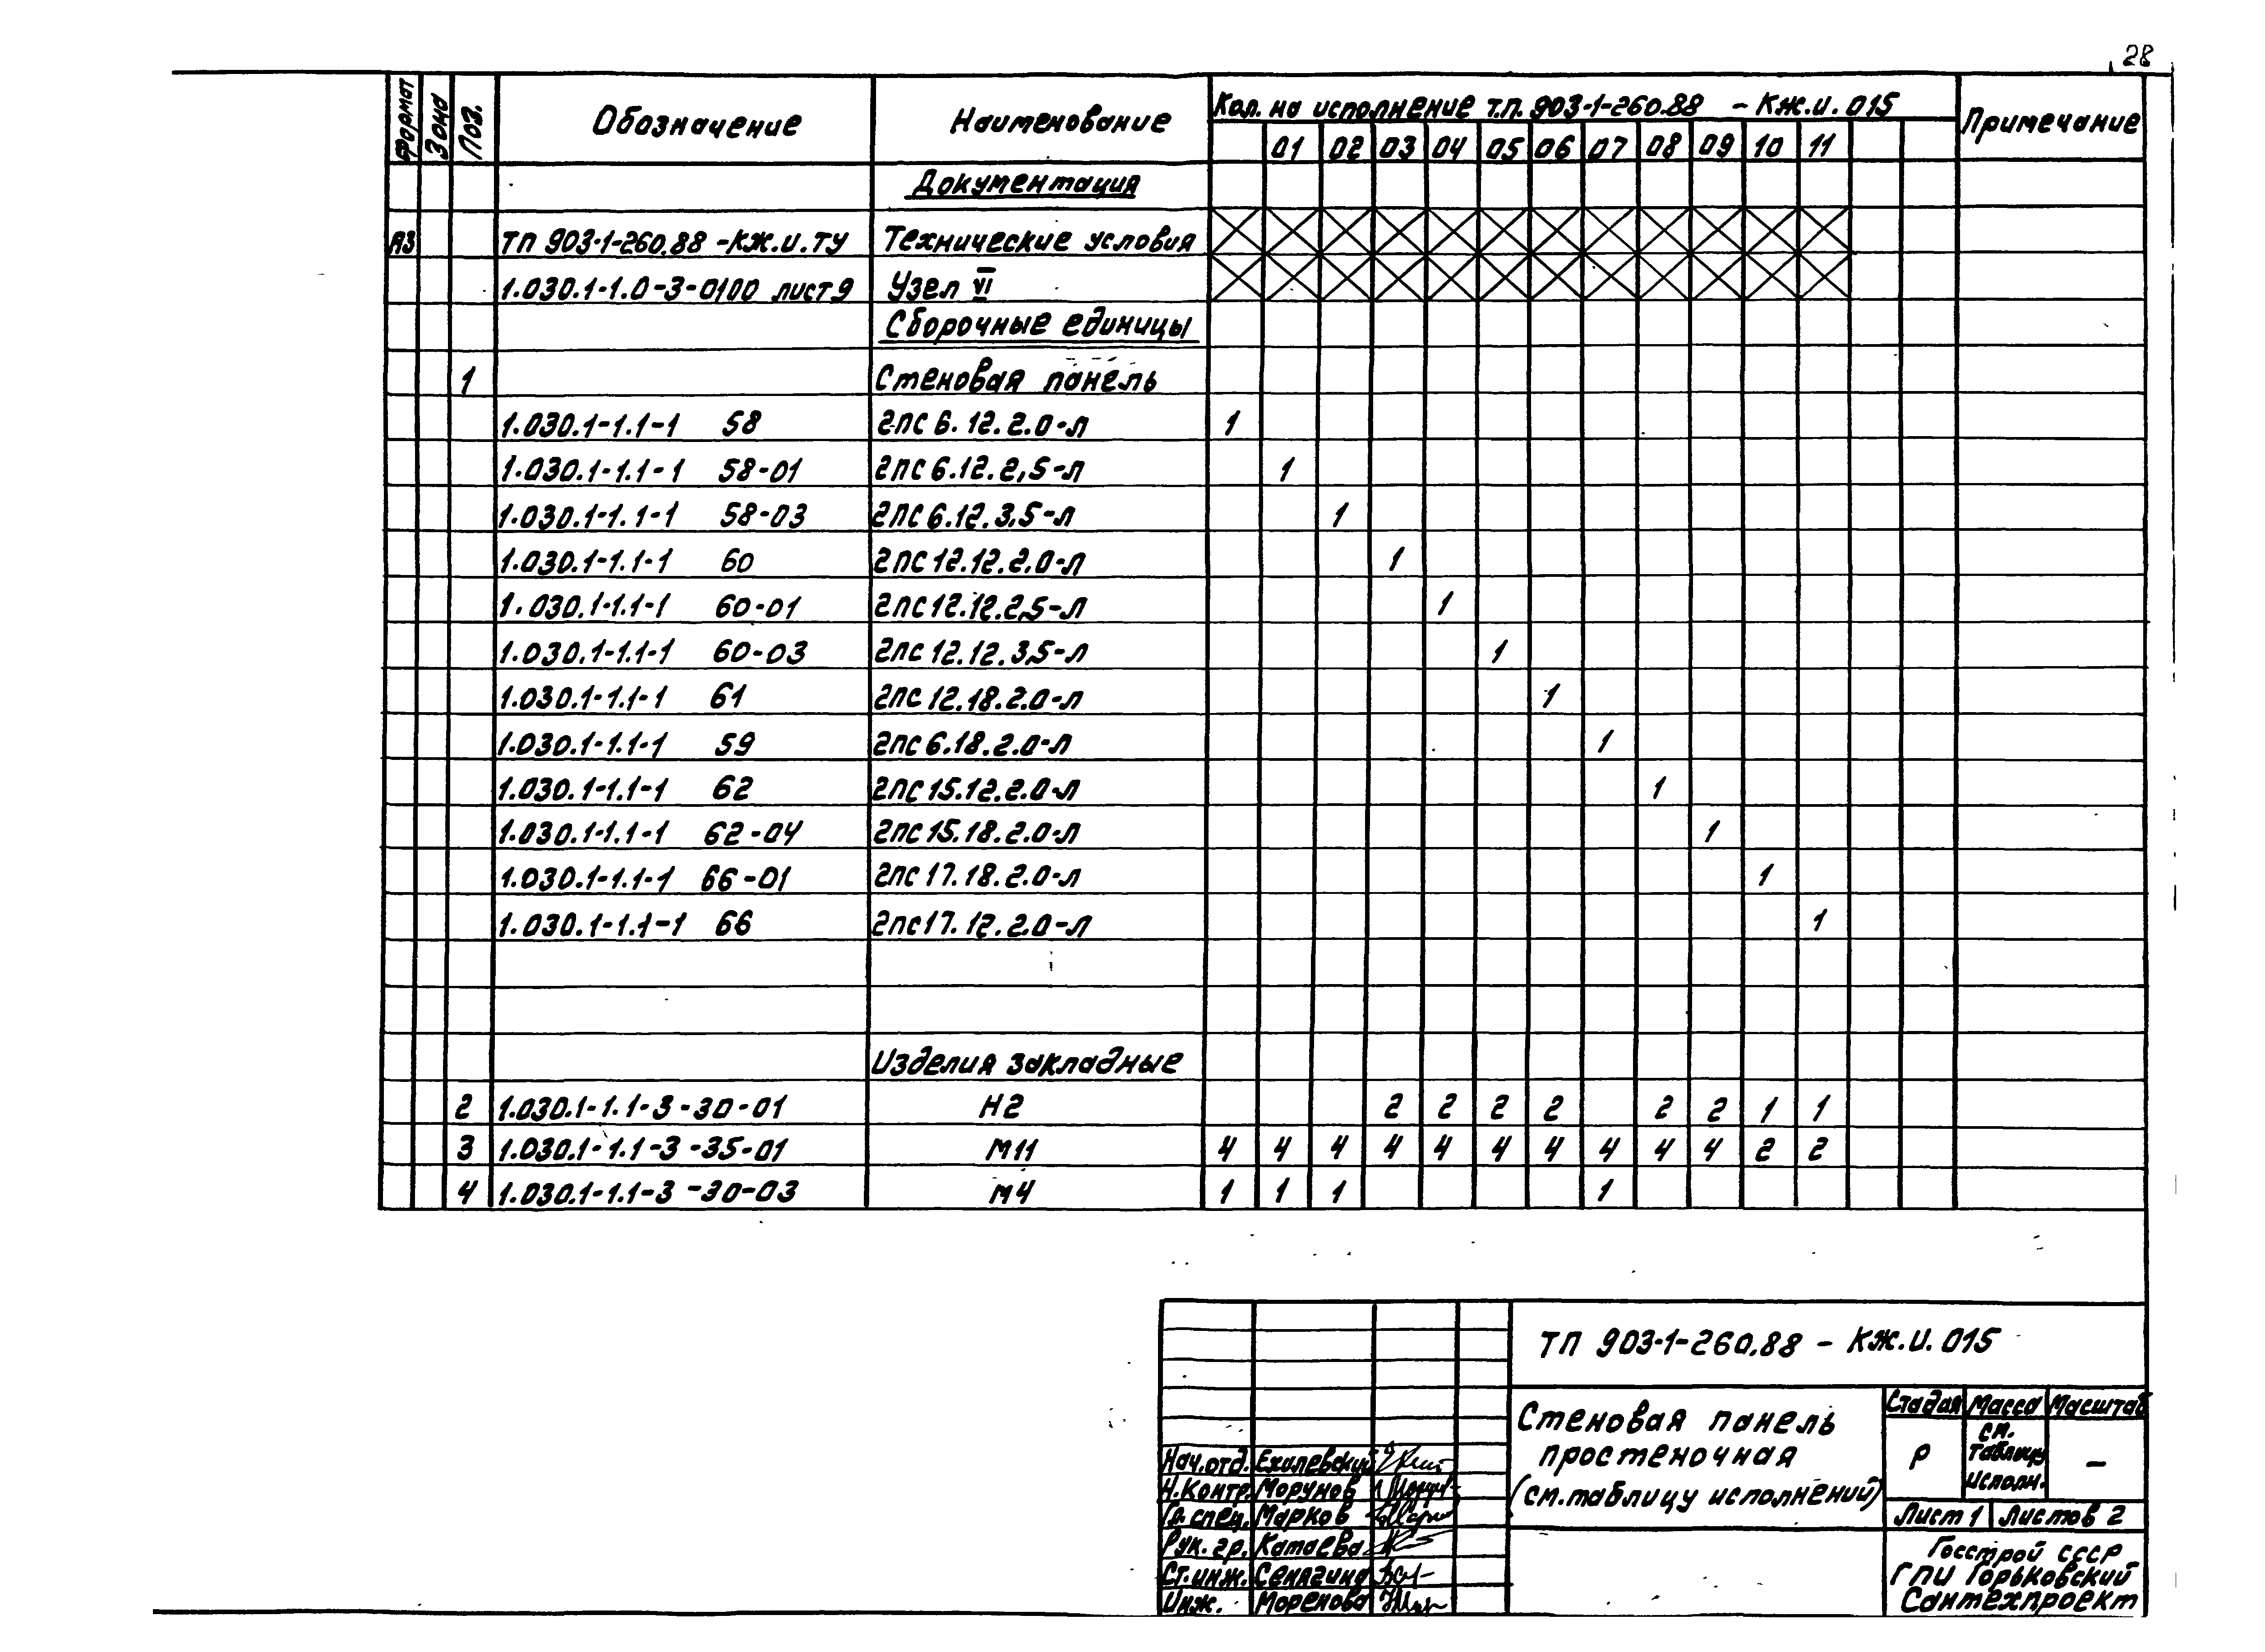 28
Формат Зона Поз. Обозначение Наименование Кол. на исполнение т.п. 903-1-260.88 - КЖ.И. 015 Примечание
01 02 03 04 05 06 07 08 09 10 11
Документация
А3 ТП 903-1-260.88 -КЖ.И.ТУ Технические условия
1.030.1-1.0-3-0100 лист 9 Узел VI
Сборочные единицы
1 Стеновая панель
1.030.1-1.1-1 58 2ПС 6.12.2.0-Л 1
1.030.1-1.1-1 58-01 2ПС 6.12.2,5-Л 1
1.030.1-1.1-1 58-03 2ПС 6.12.3,5-Л 1
1.030.1-1.1-1 60 2ПС 12.12.2.0-Л 1
1.030.1-1.1-1 60-01 2ПС 12.12.2,5-Л 1
1.030.1-1.1-1 60-03 2ПС 12.12.3,5-Л 1
1.030.1-1.1-1 61 2ПС 12.18.2.0-Л 1
1.030.1-1.1-1 59 2ПС 6.18.2.0-Л 1
1.030.1-1.1-1 62 2ПС 15.12.2.0-Л 1
1.030.1-1.1-1 62-04 2ПС 15.18.2.0-Л 1
1.030.1-1.1-1 66-01 2ПС 17.18.2.0-Л 1
1.030.1-1.1-1 66 2ПС 17.12.2.0-Л 1
Изделия закладные
2 1.030.1-1.1-3-30-01 Н2 2 2 2 2 2 2 1 1
3 1.030.1-1.1-3-35-01 М11 4 4 4 4 4 4 4 4 4 4 2 2
4 1.030.1-1.1-3-30-03 М4 1 1 1 1
ТП 903-1-260.88 - КЖ.И. 015
Стеновая панель
простеночная
(см. таблицу исполнений)
Стадия Масса Масштаб
Р см. таблицу исполн. —
Лист 1 Листов 2
Госстрой СССР
ГПИ Горьковский
Сантехпроект
Нач.отд. Ехилевский
Н.контр. Морунов
Гл. спец. Марков
Рук. гр. Катаева
Ст.инж. Сенягина
Инж. Моренова